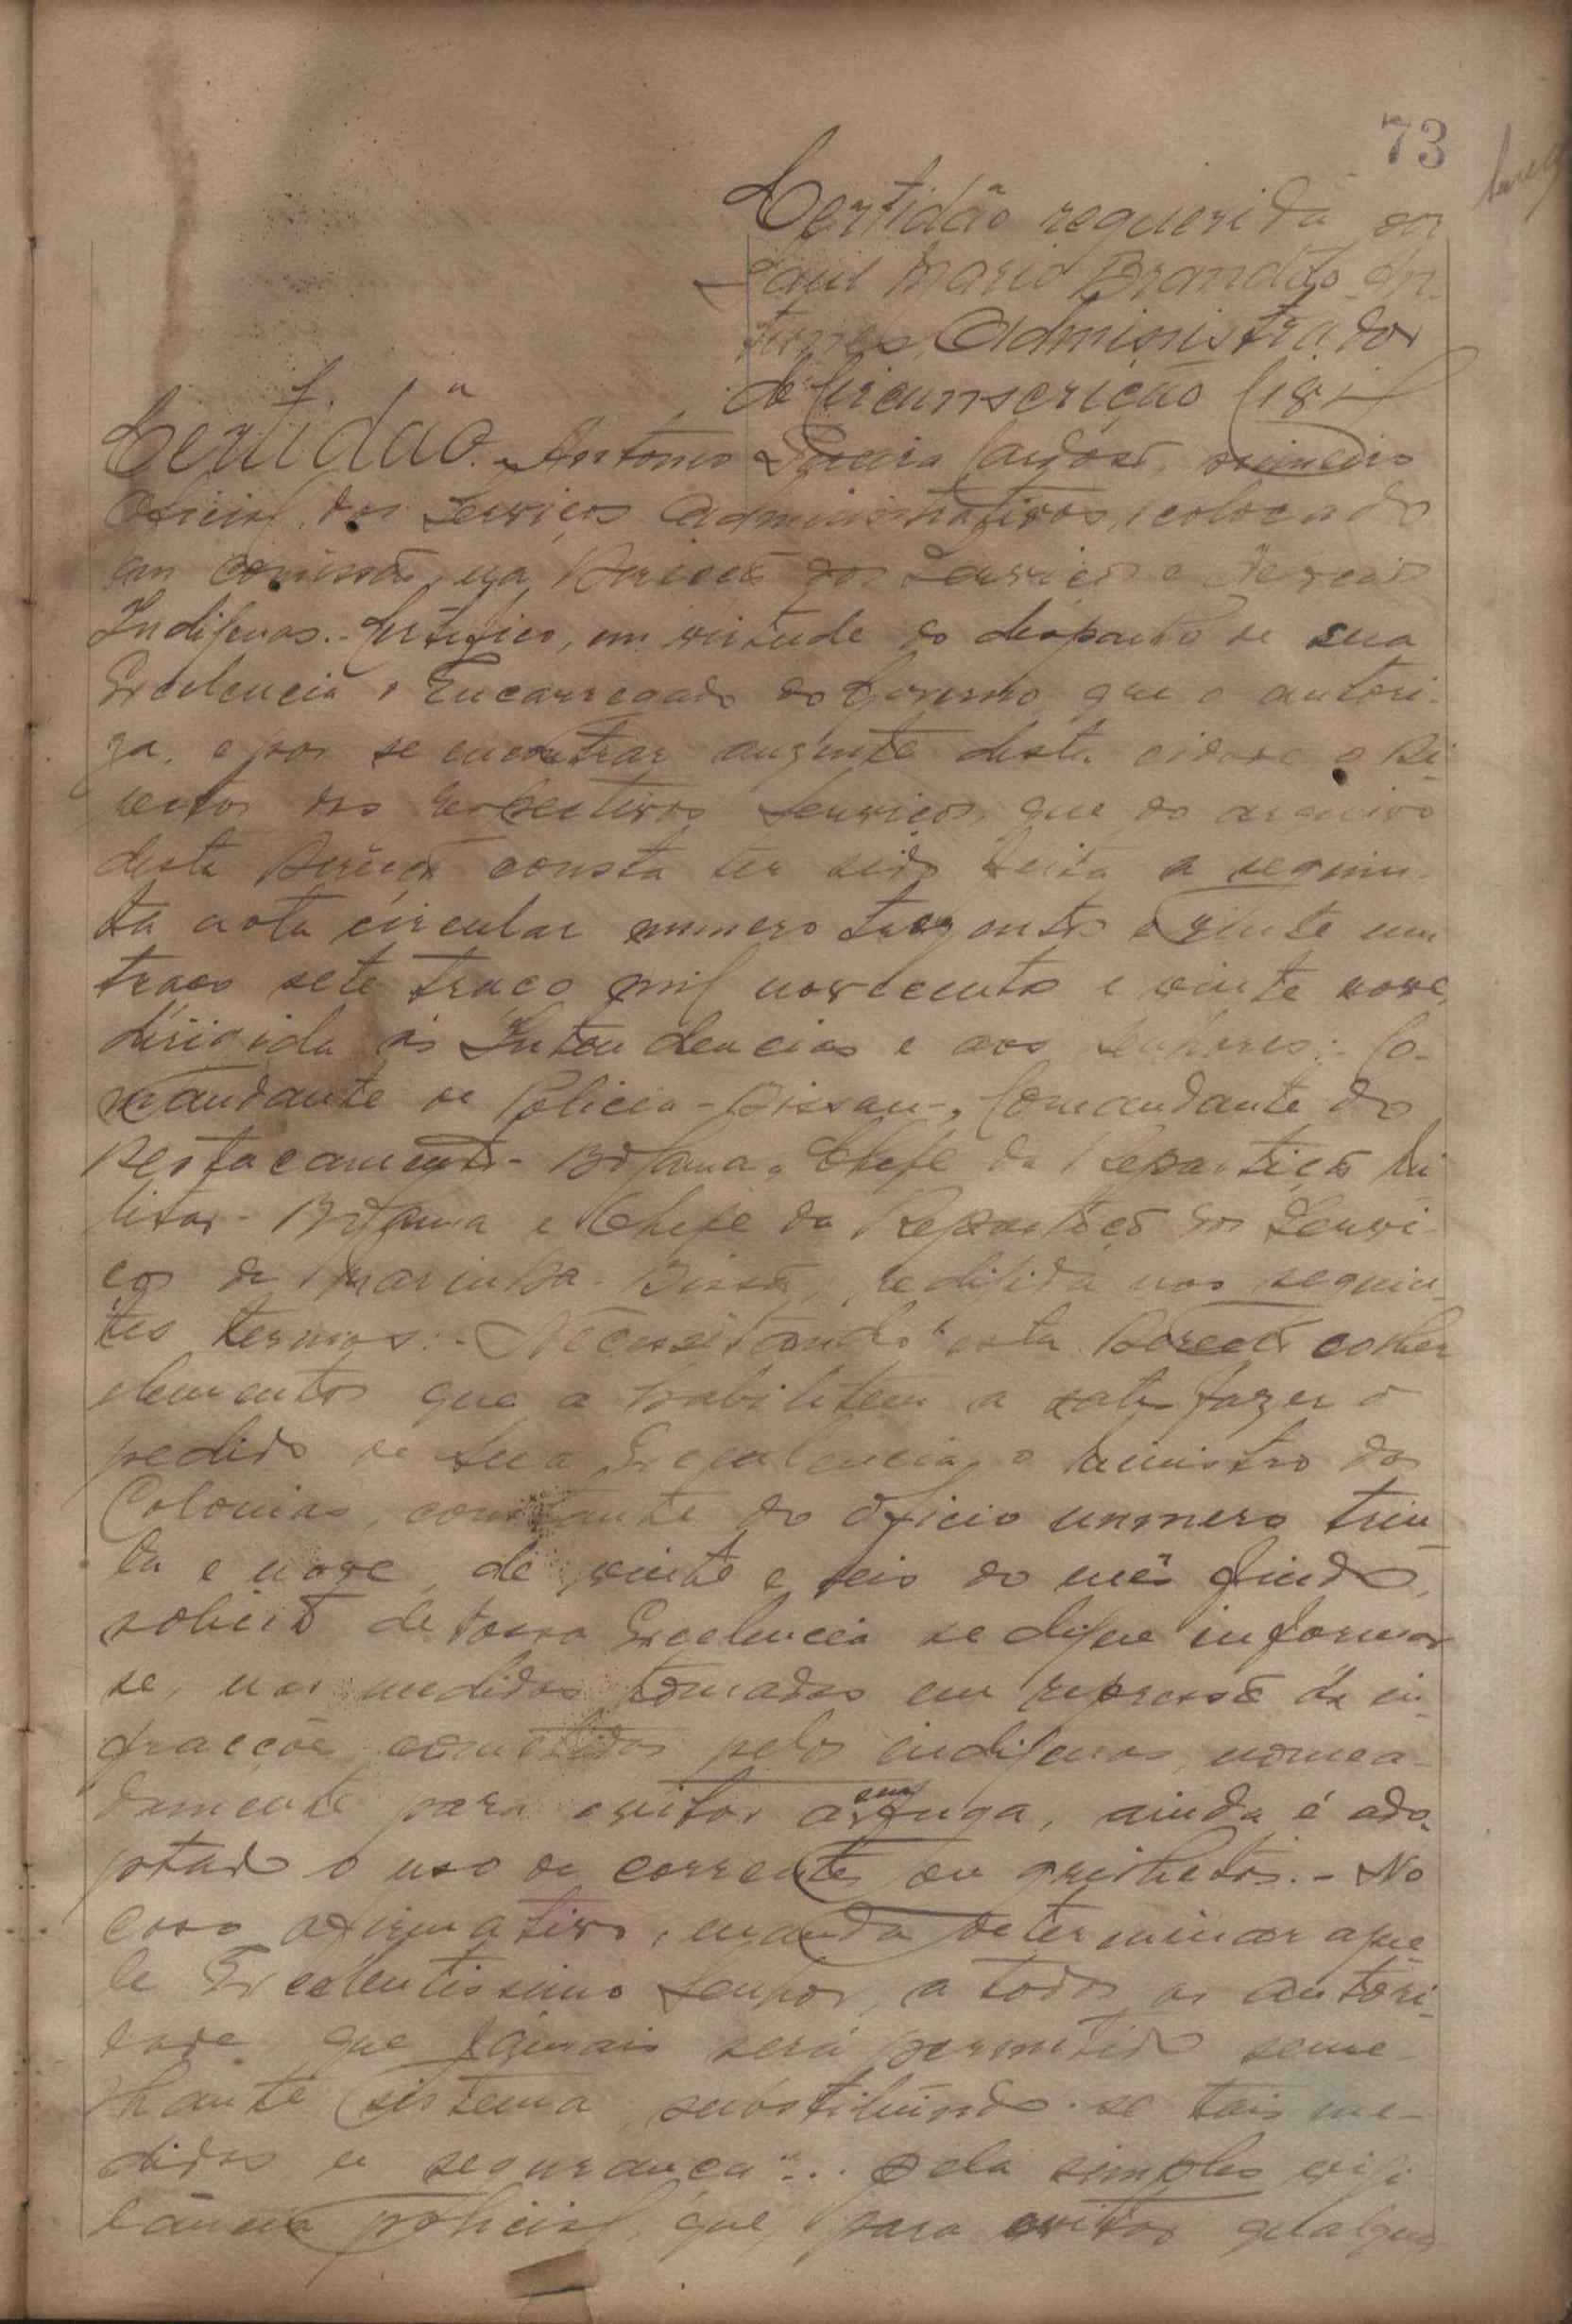 73
Certidão requerida por
Raul Mario Brandão An-
tunes, Administrador
de Circunscrição Civil
Certidão. Antonio Pereira Cardoso, primeiro
Oficial dos Serviços Administrativos, colocado
em comissão, na Direcção dos Serviços e Negocios
Indigenas.- Certifico, em virtude do despacho de sua
Excelencia o Encarregado do Governo que o autori-
za, e por se encontrar auzente desta cidade o Di-
rector dos respectivos Serviços, que do arquivo
desta Direcção consta ter sido feita a seguin-
te nota circular numero trezentos e vinte um
traço sete traço mil novecentos e vinte nove,
dirigida ás Intendencias e aos senhores:- Co-
mandante de Policia-Bissau-, Comandante do
Destacamento- Bolama, Chefe da Repartição Mi-
litar- Bolama e Chefe da Repartição dos Servi-
ços de Marinha- Bissau, redigida nos seguin-
tes termos:- Necessitando esta Direcção colher
elementos que a habilitem a satisfazer o
pedido de Sua Excelencia o Ministro das
Colonias, constante do oficio numero trin-
ta e nove, de vinte e seis do mês findo,
solicito de Vossa Excelencia se digne informar
se, nas medidas tomadas em repressão da in-
fracções cometidas pelos indigenas, nomea-
damente para evitar a sua fuga, ainda é ado-
ptado o uso de correntes ou grilhetas.- No
caso afirmativo, manda determinar aque-
le Excelentissimo Senhor, a todas as autori-
dade que jámais será permitido seme-
lhante sistema, substituindo-se tais me-
didas de segurança "... pela simples vigi-
lancia policial, que, para evitar qualquer